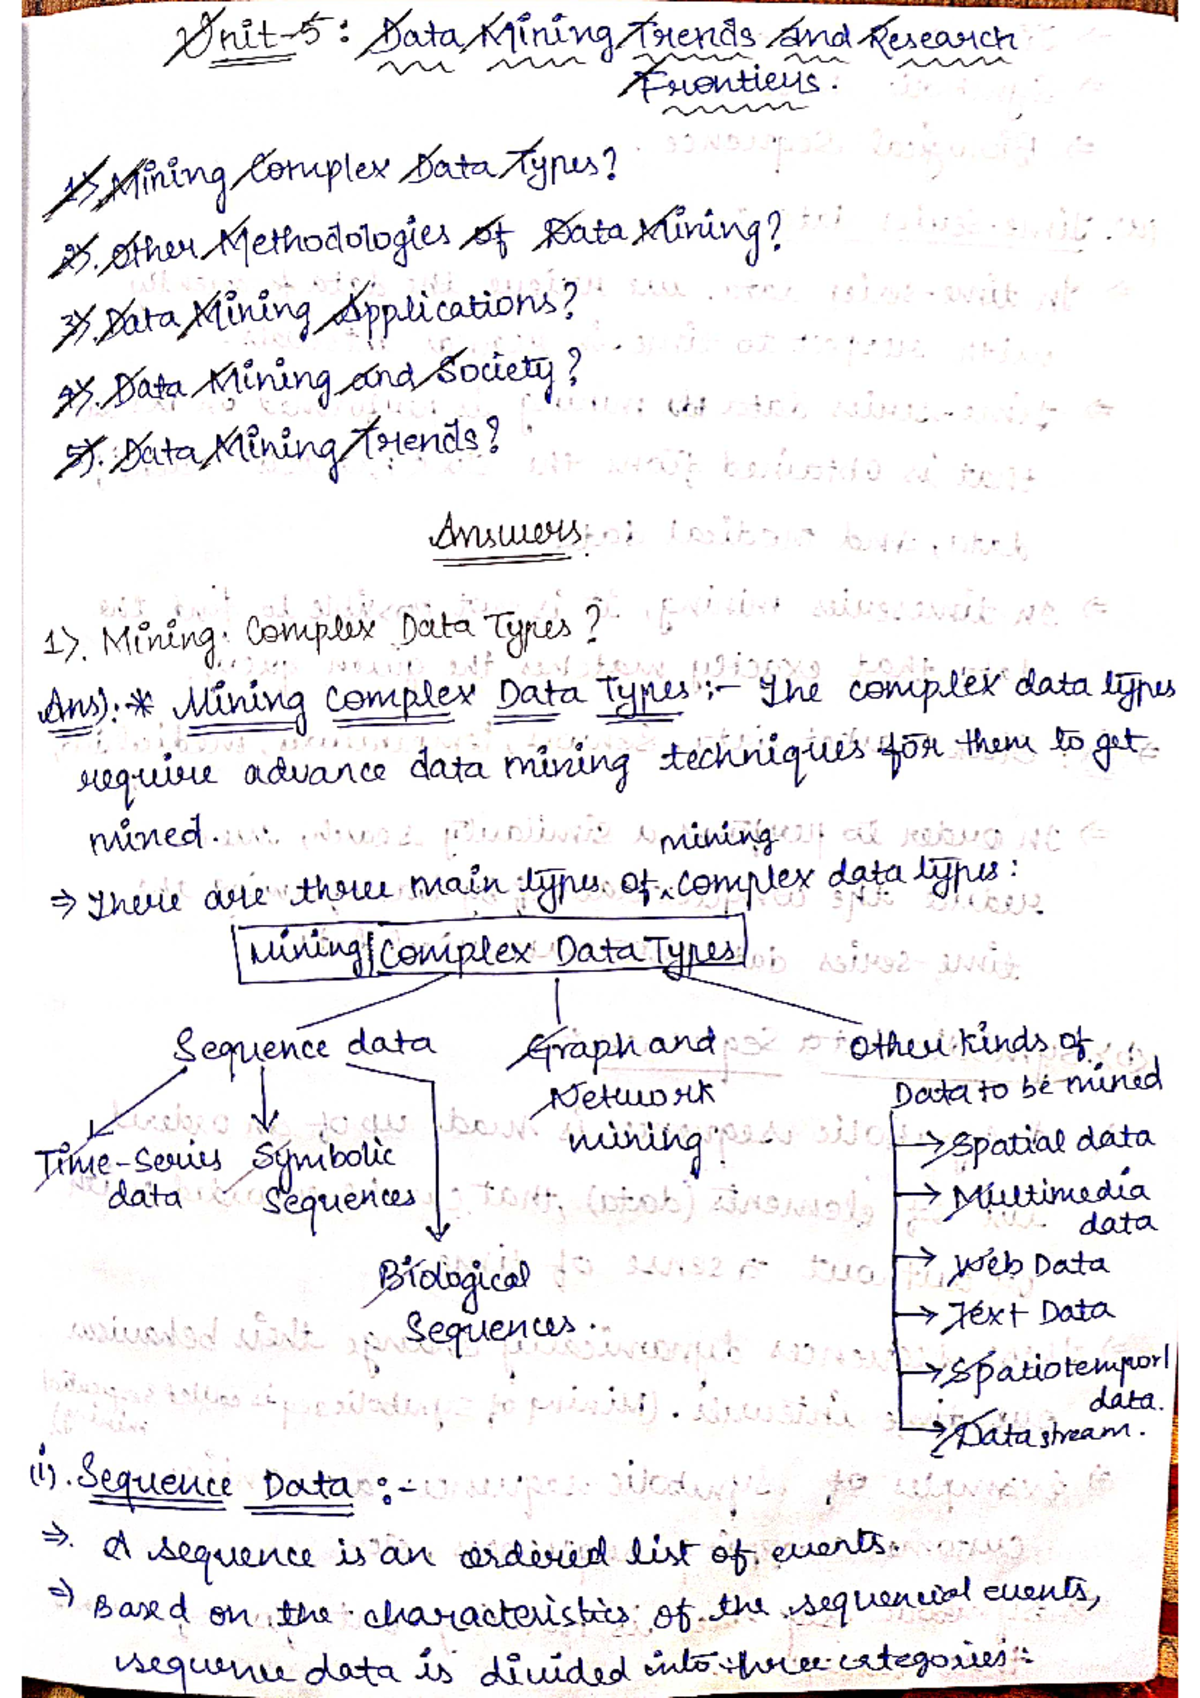 Unit-5: Data Mining Trends and Research
Frontiers.
1). Mining Complex Data Types?
2). Other Methodologies of Data Mining?
3). Data Mining Applications?
4). Data Mining and Society?
5). Data Mining Trends?
Answers.
1). Mining Complex Data Types?
Ans):* Mining Complex Data Types :- The complex data types
require advance data mining techniques for them to get
mined.
mining
=> There are three main types of ^ complex data types:
Mining Complex Data Types
Sequence data
Graph and
Network
mining
Other kinds of
Data to be mined
Time-Series
data
Symbolic
Sequences
Biological
Sequences.
Spatial data
Multimedia
data
Web Data
Text Data
Spatiotemporl
data.
Data stream.
(i). Sequence Data :-
=>. A sequence is an ordered list of events.
=> Based on the characteristics of the sequencial events,
sequence data is divided into three categories: